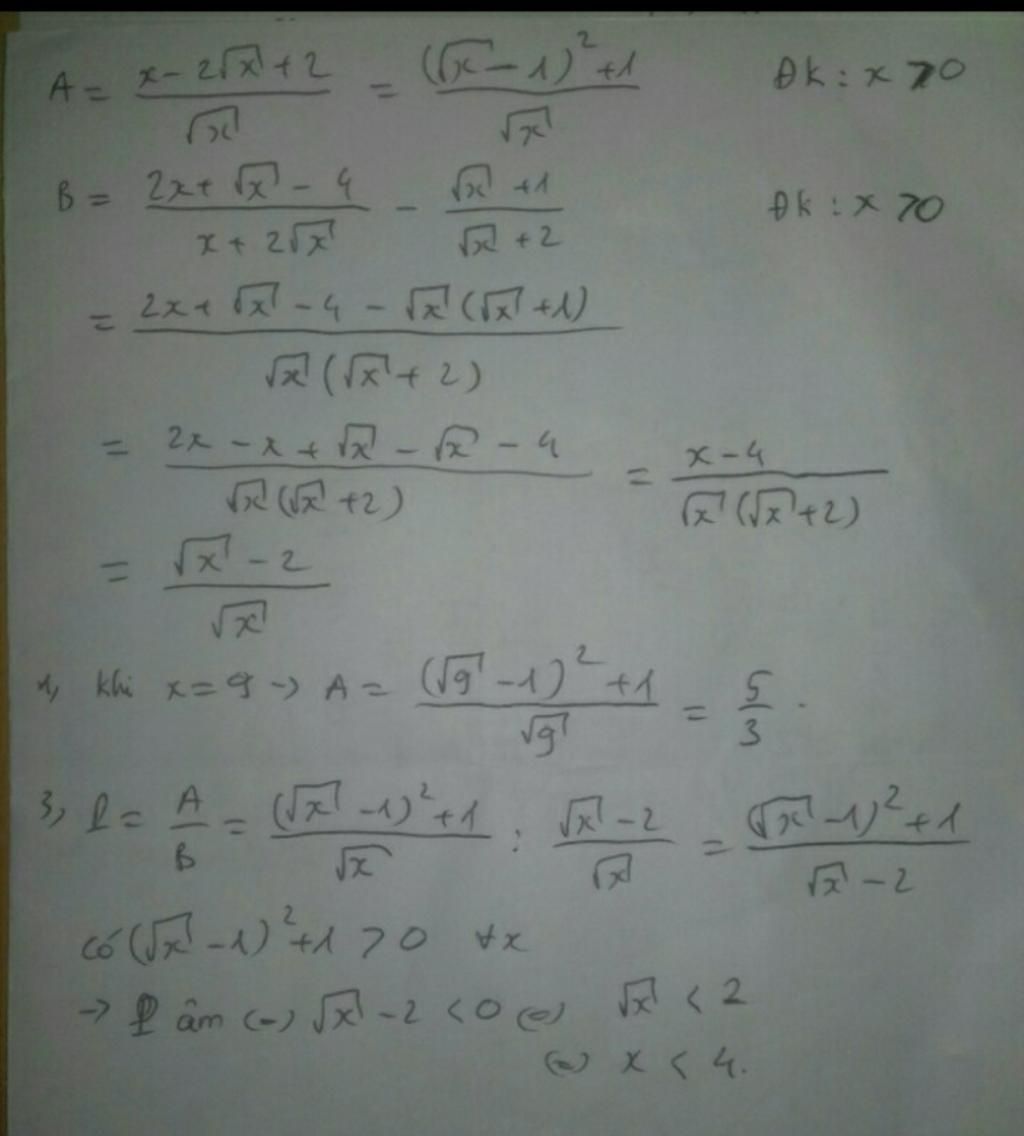 A = (x - 2√x + 2)/√x = ((√x - 1)² + 1)/√x   Đk : x > 0
B = (2x + √x - 4)/(x + 2√x) - (√x + 1)/(√x + 2)   Đk : x > 0
= (2x + √x - 4 - √x (√x + 1))/(√x (√x + 2))
= (2x - x + √x - √x - 4)/(√x (√x + 2)) = (x - 4)/(√x (√x + 2))
= (√x - 2)/√x
1, khi x = 9 → A = ((√9 - 1)² + 1)/√9 = 5/3 .
3, P = A/B = ((√x - 1)² + 1)/√x : (√x - 2)/√x = ((√x - 1)² + 1)/(√x - 2)
có (√x - 1)² + 1 > 0 ∀x
→ P âm (=) √x - 2 < 0 (=) √x < 2
(=) x < 4.